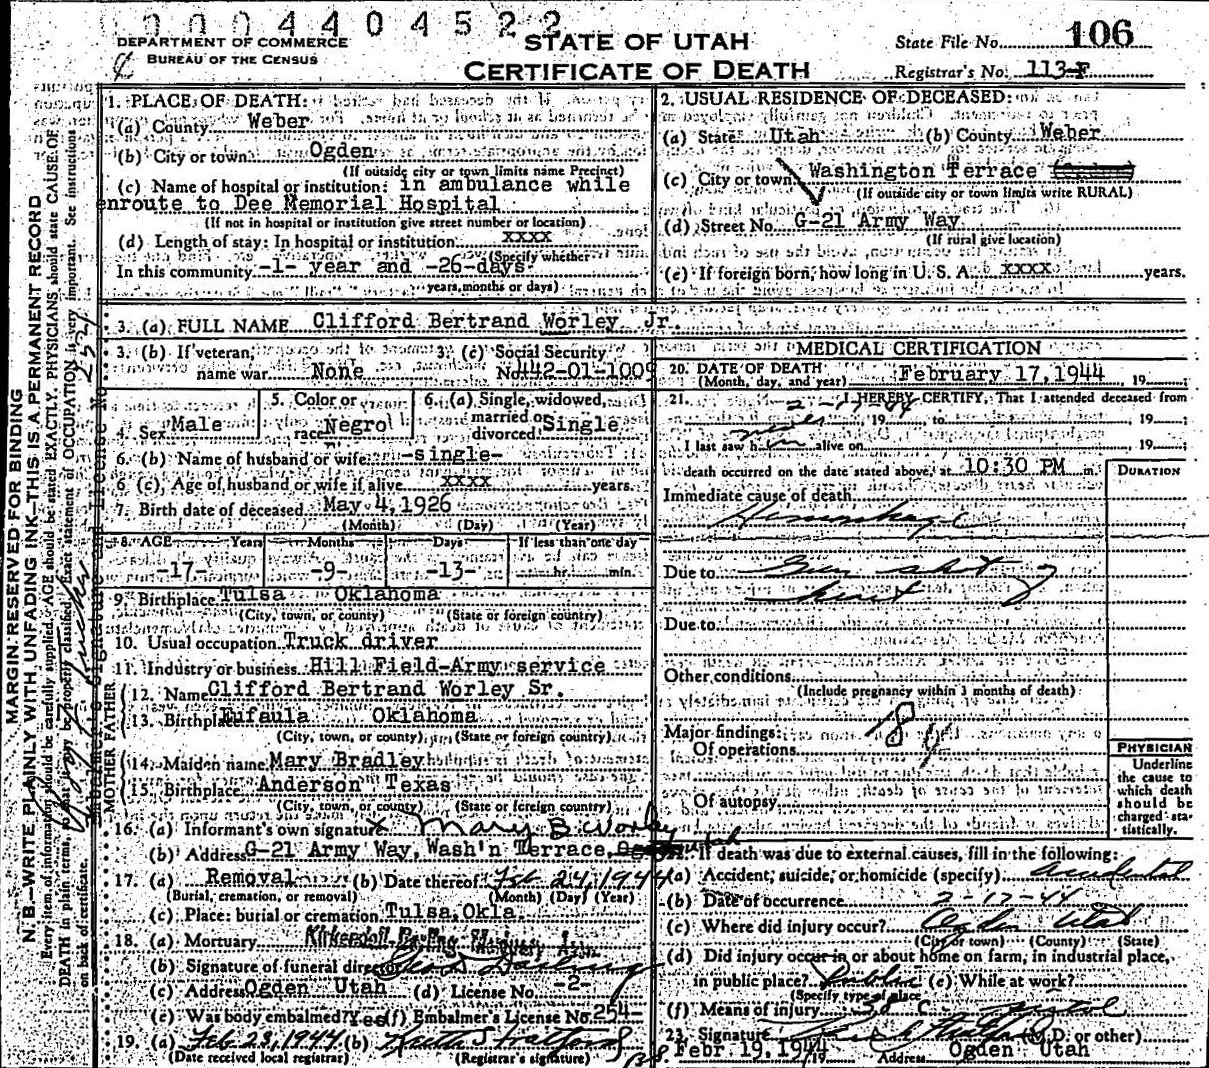 0004404522
DEPARTMENT OF COMMERCE
BUREAU OF THE CENSUS
STATE OF UTAH
CERTIFICATE OF DEATH
State File No. 106
Registrar's No. 113-F
MARGIN RESERVED FOR BINDING
N. B.—WRITE PLAINLY WITH UNFADING INK—THIS IS A PERMANENT RECORD
Every item of information should be carefully supplied. AGE should be stated EXACTLY. PHYSICIANS should state CAUSE OF
DEATH in plain terms, so that it may be properly classified. Exact statement of OCCUPATION is very important. See instructions
on back of certificate.
1. PLACE OF DEATH:
(a) County Weber
(b) City or town Ogden
(If outside city or town limits name Precinct)
(c) Name of hospital or institution: in ambulance while
enroute to Dee Memorial Hospital
(If not in hospital or institution give street number or location)
(d) Length of stay: In hospital or institution xxxx
(Specify whether
In this community -1- year and -26-days
years, months or days)
2. USUAL RESIDENCE OF DECEASED:
(a) State Utah (b) County Weber
(c) City or town Washington Terrace
(If outside city or town limits write RURAL)
(d) Street No. G-21 Army Way
(If rural give location)
(e) If foreign born, how long in U. S. A. xxxx years.
3. (a) FULL NAME Clifford Bertrand Worley Jr.
3. (b) If veteran, name war None
3. (c) Social Security No. 442-01-1009
4. Sex Male
5. Color or race Negro
6. (a) Single, widowed, married or divorced Single
6. (b) Name of husband or wife -single-
6 (c). Age of husband or wife if alive xxxx years.
7. Birth date of deceased May 4, 1926
(Month) (Day) (Year)
8. AGE Years Months Days If less than one day
-17- -9- -13- hr. min.
9. Birthplace Tulsa Oklahoma
(City, town, or county) (State or foreign country)
10. Usual occupation Truck driver
11. Industry or business Hill Field-Army service
FATHER
12. Name Clifford Bertrand Worley Sr.
13. Birthplace Eufaula Oklahoma
(City, town, or county) (State or foreign country)
MOTHER
14. Maiden name Mary Bradley
15. Birthplace Anderson Texas
(City, town, or county) (State or foreign country)
16. (a) Informant's own signature x Mary B. Worley
(b) Address G-21 Army Way, Wash'n Terrace, Utah
17. (a) Removal (b) Date thereof Feb 24, 1944
(Burial, cremation, or removal) (Month) (Day) (Year)
(c) Place: burial or cremation Tulsa, Okla.
18. (a) Mortuary
(b) Signature of funeral director
(c) Address Ogden Utah (d) License No. -2-
(e) Was body embalmed? Yes (f) Embalmer's License No. 254-
19. (a) Feb 23, 1944 (b)
(Date received local registrar) (Registrar's signature)
MEDICAL CERTIFICATION
20. DATE OF DEATH
(Month, day, and year) February 17, 1944, 19
21. I HEREBY CERTIFY, That I attended deceased from
2-17-44, 19 to , 19
I last saw him alive on , 19
death occurred on the date stated above, at 10:30 PM m.
DURATION
Immediate cause of death
Hemorrhage
Due to Gun shot
Due to
Other conditions
(Include pregnancy within 3 months of death)
Major findings:
Of operations
Of autopsy
PHYSICIAN
Underline
the cause to
which death
should be
charged sta-
tistically.
22. If death was due to external causes, fill in the following:
(a) Accident, suicide, or homicide (specify) Accidental
(b) Date of occurrence 2-17-44
(c) Where did injury occur? Ogden Utah
(City or town) (County) (State)
(d) Did injury occur in or about home on farm, in industrial place,
in public place? Public (e) While at work?
(Specify type of place
(f) Means of injury pistol
23. Signature (M.D. or other)
Febr. 19, 1944 Address Ogden Utah